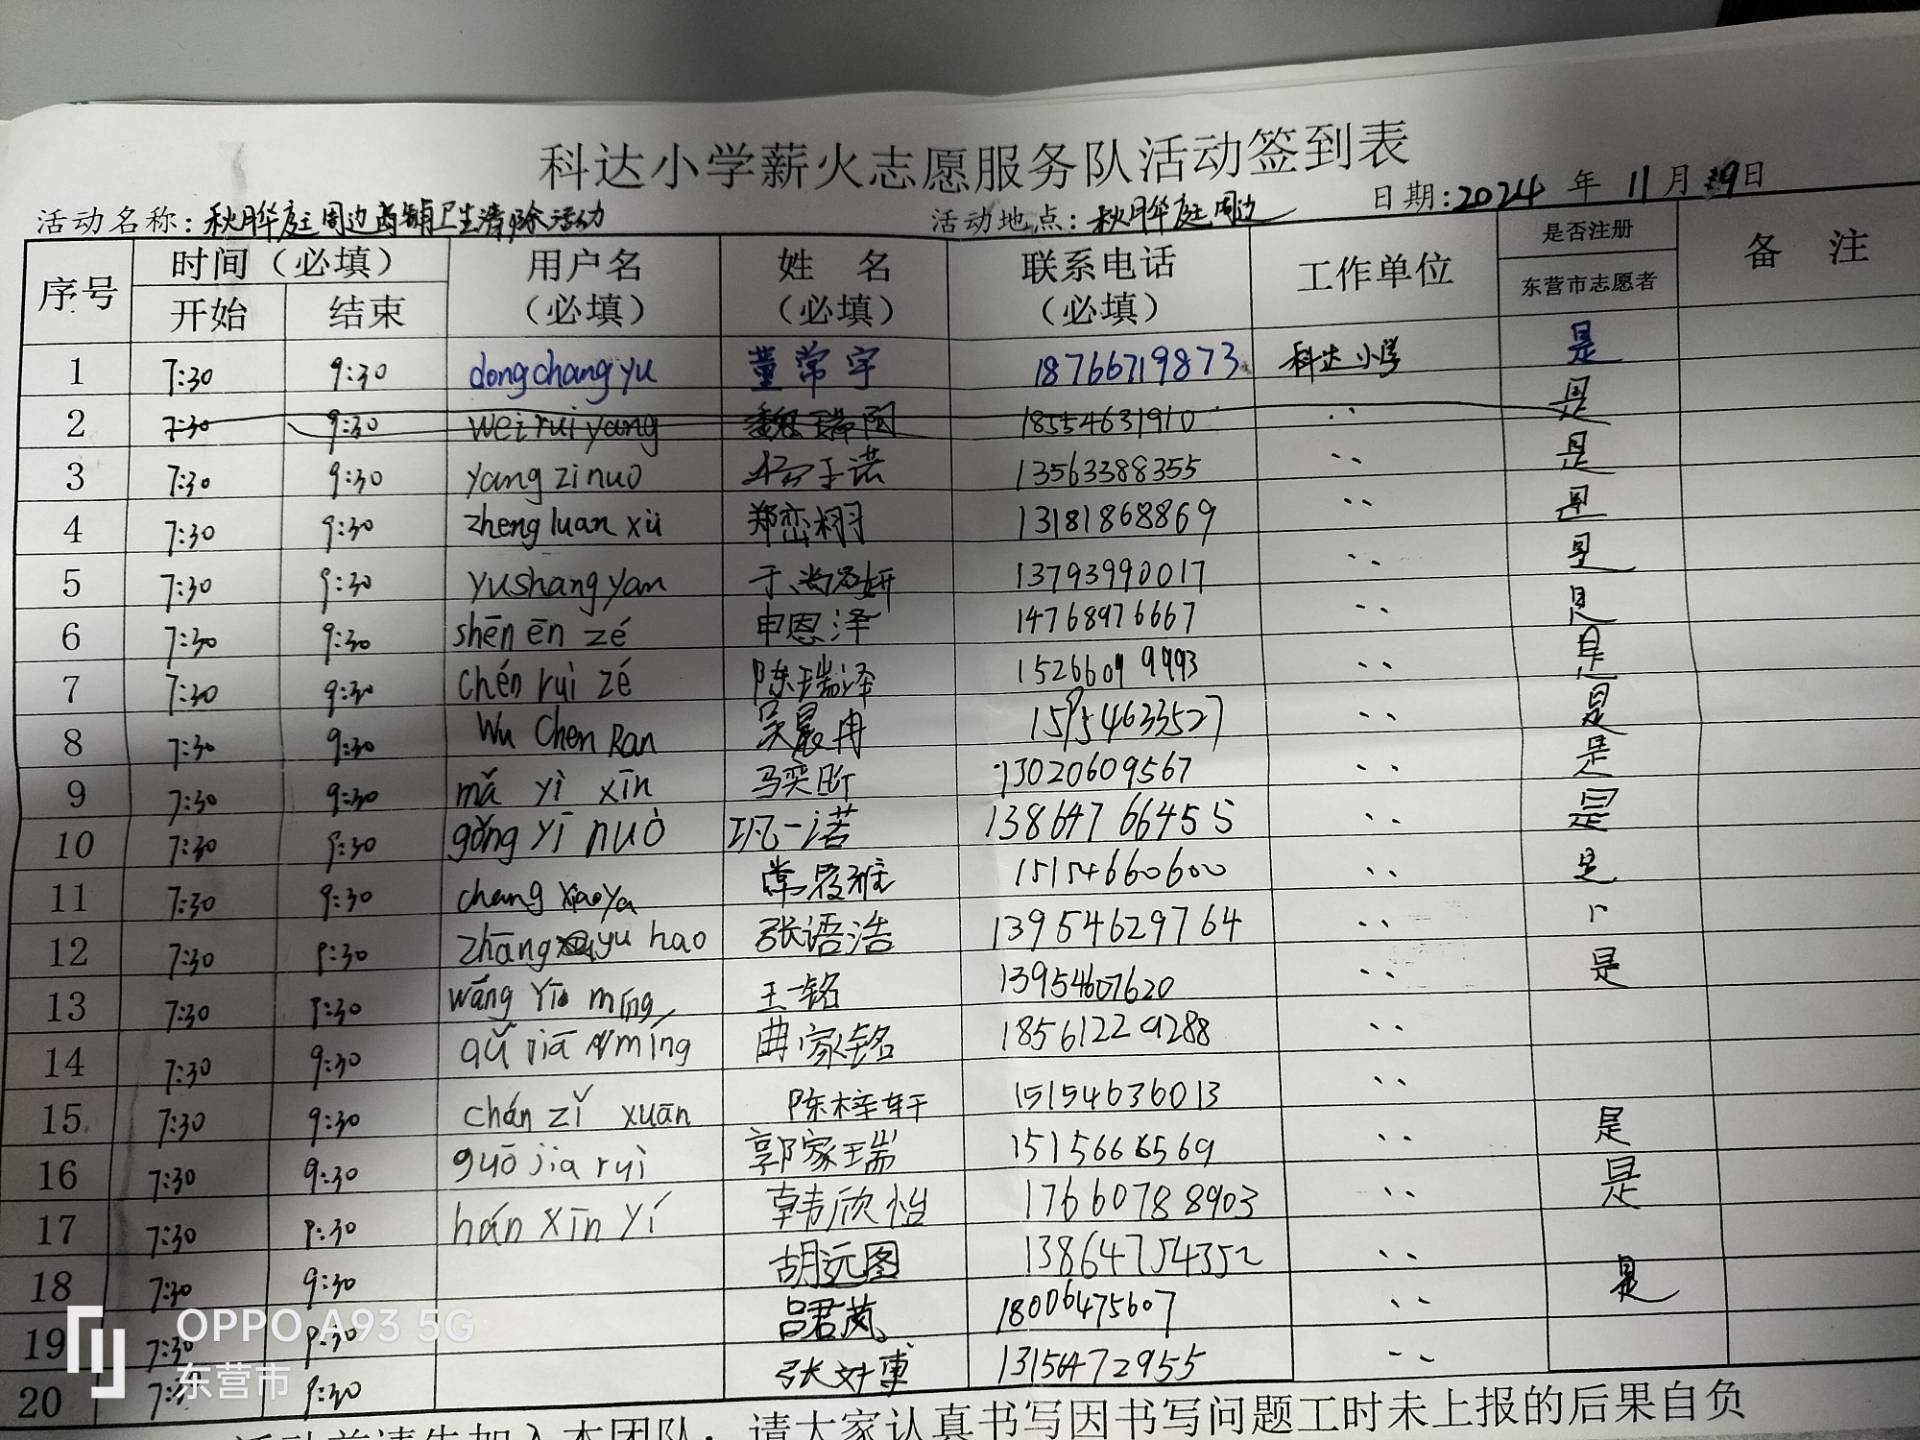 科达小学薪火志愿服务队活动签到表
活动名称:秋晔庭周边卫生清除活动 活动地点:秋晔庭周边 日期:2024年11月9日
序号 时间(必填) 用户名(必填) 姓名(必填) 联系电话(必填) 工作单位 是否注册东营市志愿者 备注
开始 结束
1 7:30 9:30 dongchangyu 董常宇 18766719873 科达小学 是
2 7:30 9:30 weiruiyang 魏瑞阳 18554631910 〃 是
3 7:30 9:30 yangzinuo 杨子诺 13563388355 〃 是
4 7:30 9:30 zhengluanxü 郑峦栩 13181868869 〃 是
5 7:30 9:30 yushangyan 于尚妍 13793990017 〃 是
6 7:30 9:30 shēn ēn zé 申恩泽 14768976667 〃 是
7 7:30 9:30 chén ruì zé 陈瑞泽 15266099993 〃 是
8 7:30 9:30 Wu Chen Ran 吴晨冉 15954633527 〃 是
9 7:30 9:30 mǎ yì xīn 马奕昕 13020609567 〃 是
10 7:30 9:30 gǒng yī nuò 巩一诺 13864766455 〃 是
11 7:30 9:30 chang xiaoya 常筱雅 15154660600 〃 是
12 7:30 9:30 zhāng yu hao 张语浩 13954629764 〃
13 7:30 9:30 wáng Yī míng 王一铭 13954607620 〃 是
14 7:30 9:30 qǔ jiā míng 曲家铭 18561229288 〃
15 7:30 9:30 chán zǐ xuān 陈梓轩 15154636013 〃
16 7:30 9:30 guō jia ruì 郭家瑞 1515666569 〃 是
17 7:30 9:30 hán xīn yí 韩欣怡 17660788903 〃 是
18 7:30 9:30 胡远图 13864754352 〃
19 7:30 9:30 吕君岚 18006475607 〃 是
20 7:3 9:30 张博 13156472955 〃
活动前请先加入本团队，请大家认真书写因书写问题工时未上报的后果自负
OPPO A93 5G
东营市